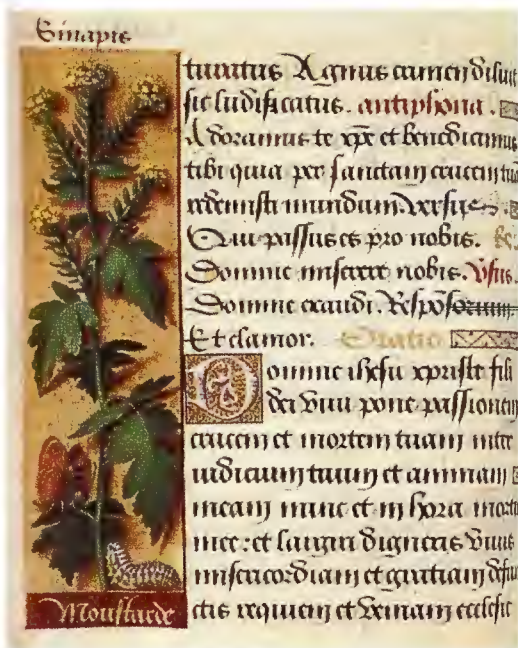 Sinapis
turatus Agnus amen diluit
sic ludificatus. antiphona.
Adoramus te xpe et benedicimus
tibi quia per sanctam crucem tuā
redemisti mundum. Versus.
Qui passus es pro nobis. R.
Domine miserere nobis. Vsus.
Domine exaudi. Responsorium
Et clamor. Oratio
Domine ihesu xpriste fili
dei viui pone passionem
crucem et mortem tuam inter
iudicium tuum et animam
meam nunc et in hora mortis
mee: et largiri digneris viuis
misericordiam et gratiam defun
ctis requiem et veniam ecclesie
Moustarde